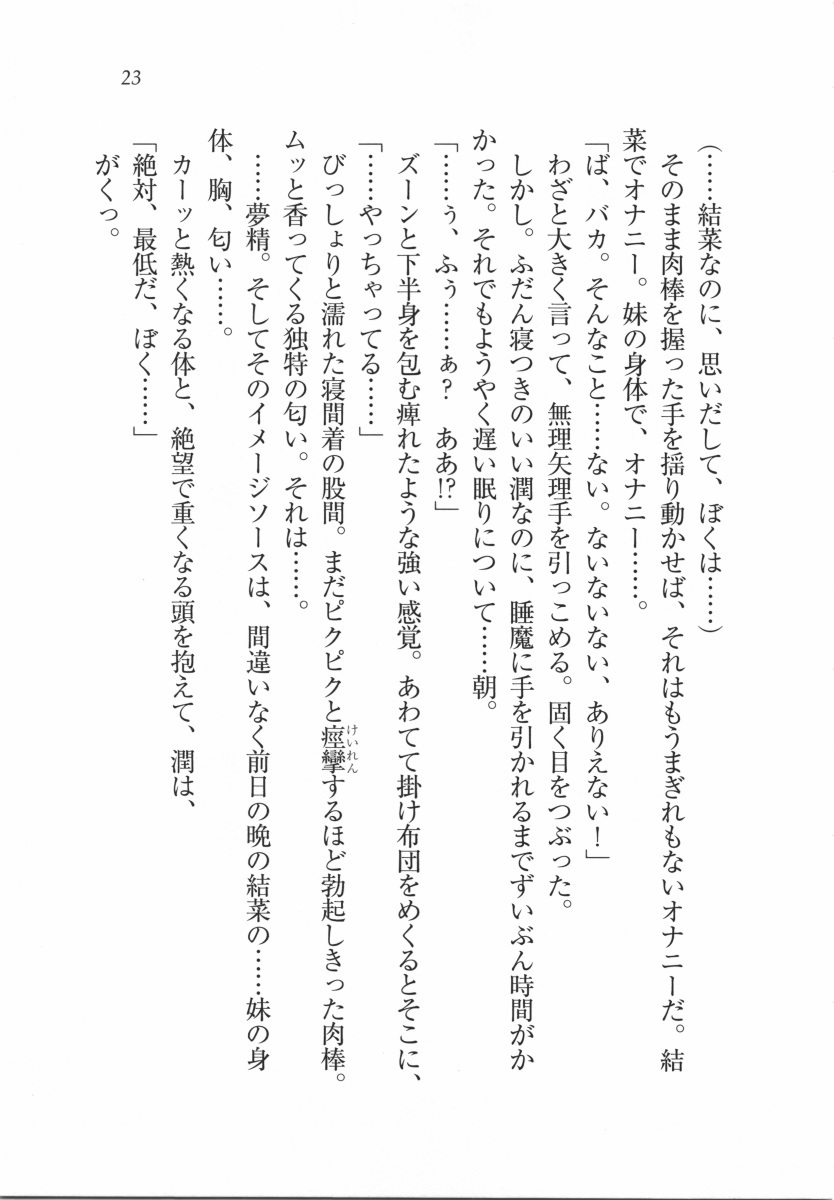 23
(……結菜なのに、思いだして、ぼくは……)
そのまま肉棒を握った手を揺り動かせば、それはもうまぎれもないオナニーだ。結
菜でオナニー。妹の身体で、オナニー……。
「ば、バカ。そんなこと……ない。ないないない、ありえない！」
わざと大きく言って、無理矢理手を引っこめる。固く目をつぶった。
しかし。ふだん寝つきのいい潤なのに、睡魔に手を引かれるまでずいぶん時間がか
かった。それでもようやく遅い眠りについて……朝。
「……ぅ、ふぅ……ぁ？　ああ!?」
ズーンと下半身を包む痺れたような強い感覚。あわてて掛け布団をめくるとそこに、
「……やっちゃってる……」
びっしょりと濡れた寝間着の股間。まだピクピクと痙攣けいれんするほど勃起しきった肉棒。
ムッと香ってくる独特の匂い。それは……。
……夢精。そしてそのイメージソースは、間違いなく前日の晩の結菜の……妹の身
体、胸、匂い……。
カーッと熱くなる体と、絶望で重くなる頭を抱えて、潤は、
「絶対、最低だ、ぼく……」
がくっ。